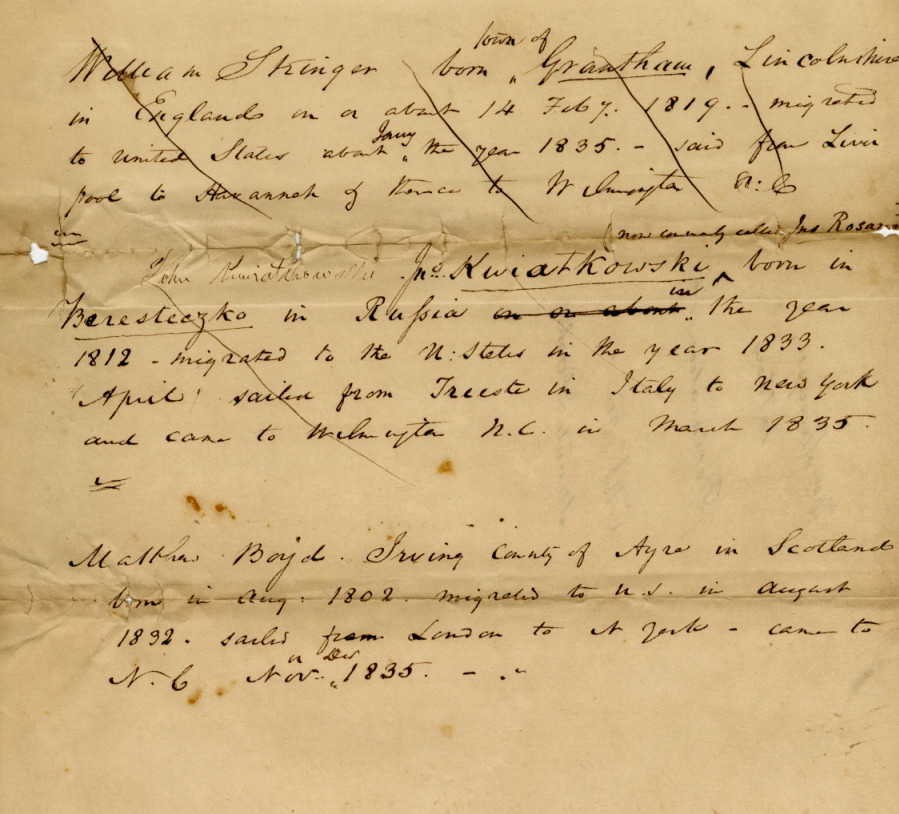 town of
William Stringer born " Grantham, Lincolnshire
in England on or about 14 Feby. 1819. - migrated
to United States about " Jany the year 1835. - said from Liver
pool to Savannah & thence to Wilmington N: C
(now commonly called Jno Rosa
John Kwiatkowski Jno. Kwiatkowski ^ born in
Beresteczko in Russia on or about in " the year
1812 - migrated to the U: States in the year 1833.
April sailed from Trieste in Italy to New York
and came to Wilmington N.C. in March 1835.
Matthew Boyd. Irving County of Ayre in Scotland
born in Aug. 1802. migrated to U.S. in August
1832. sailed from London to N York - came to
or Dec
N. C Nov. " 1835. - . "